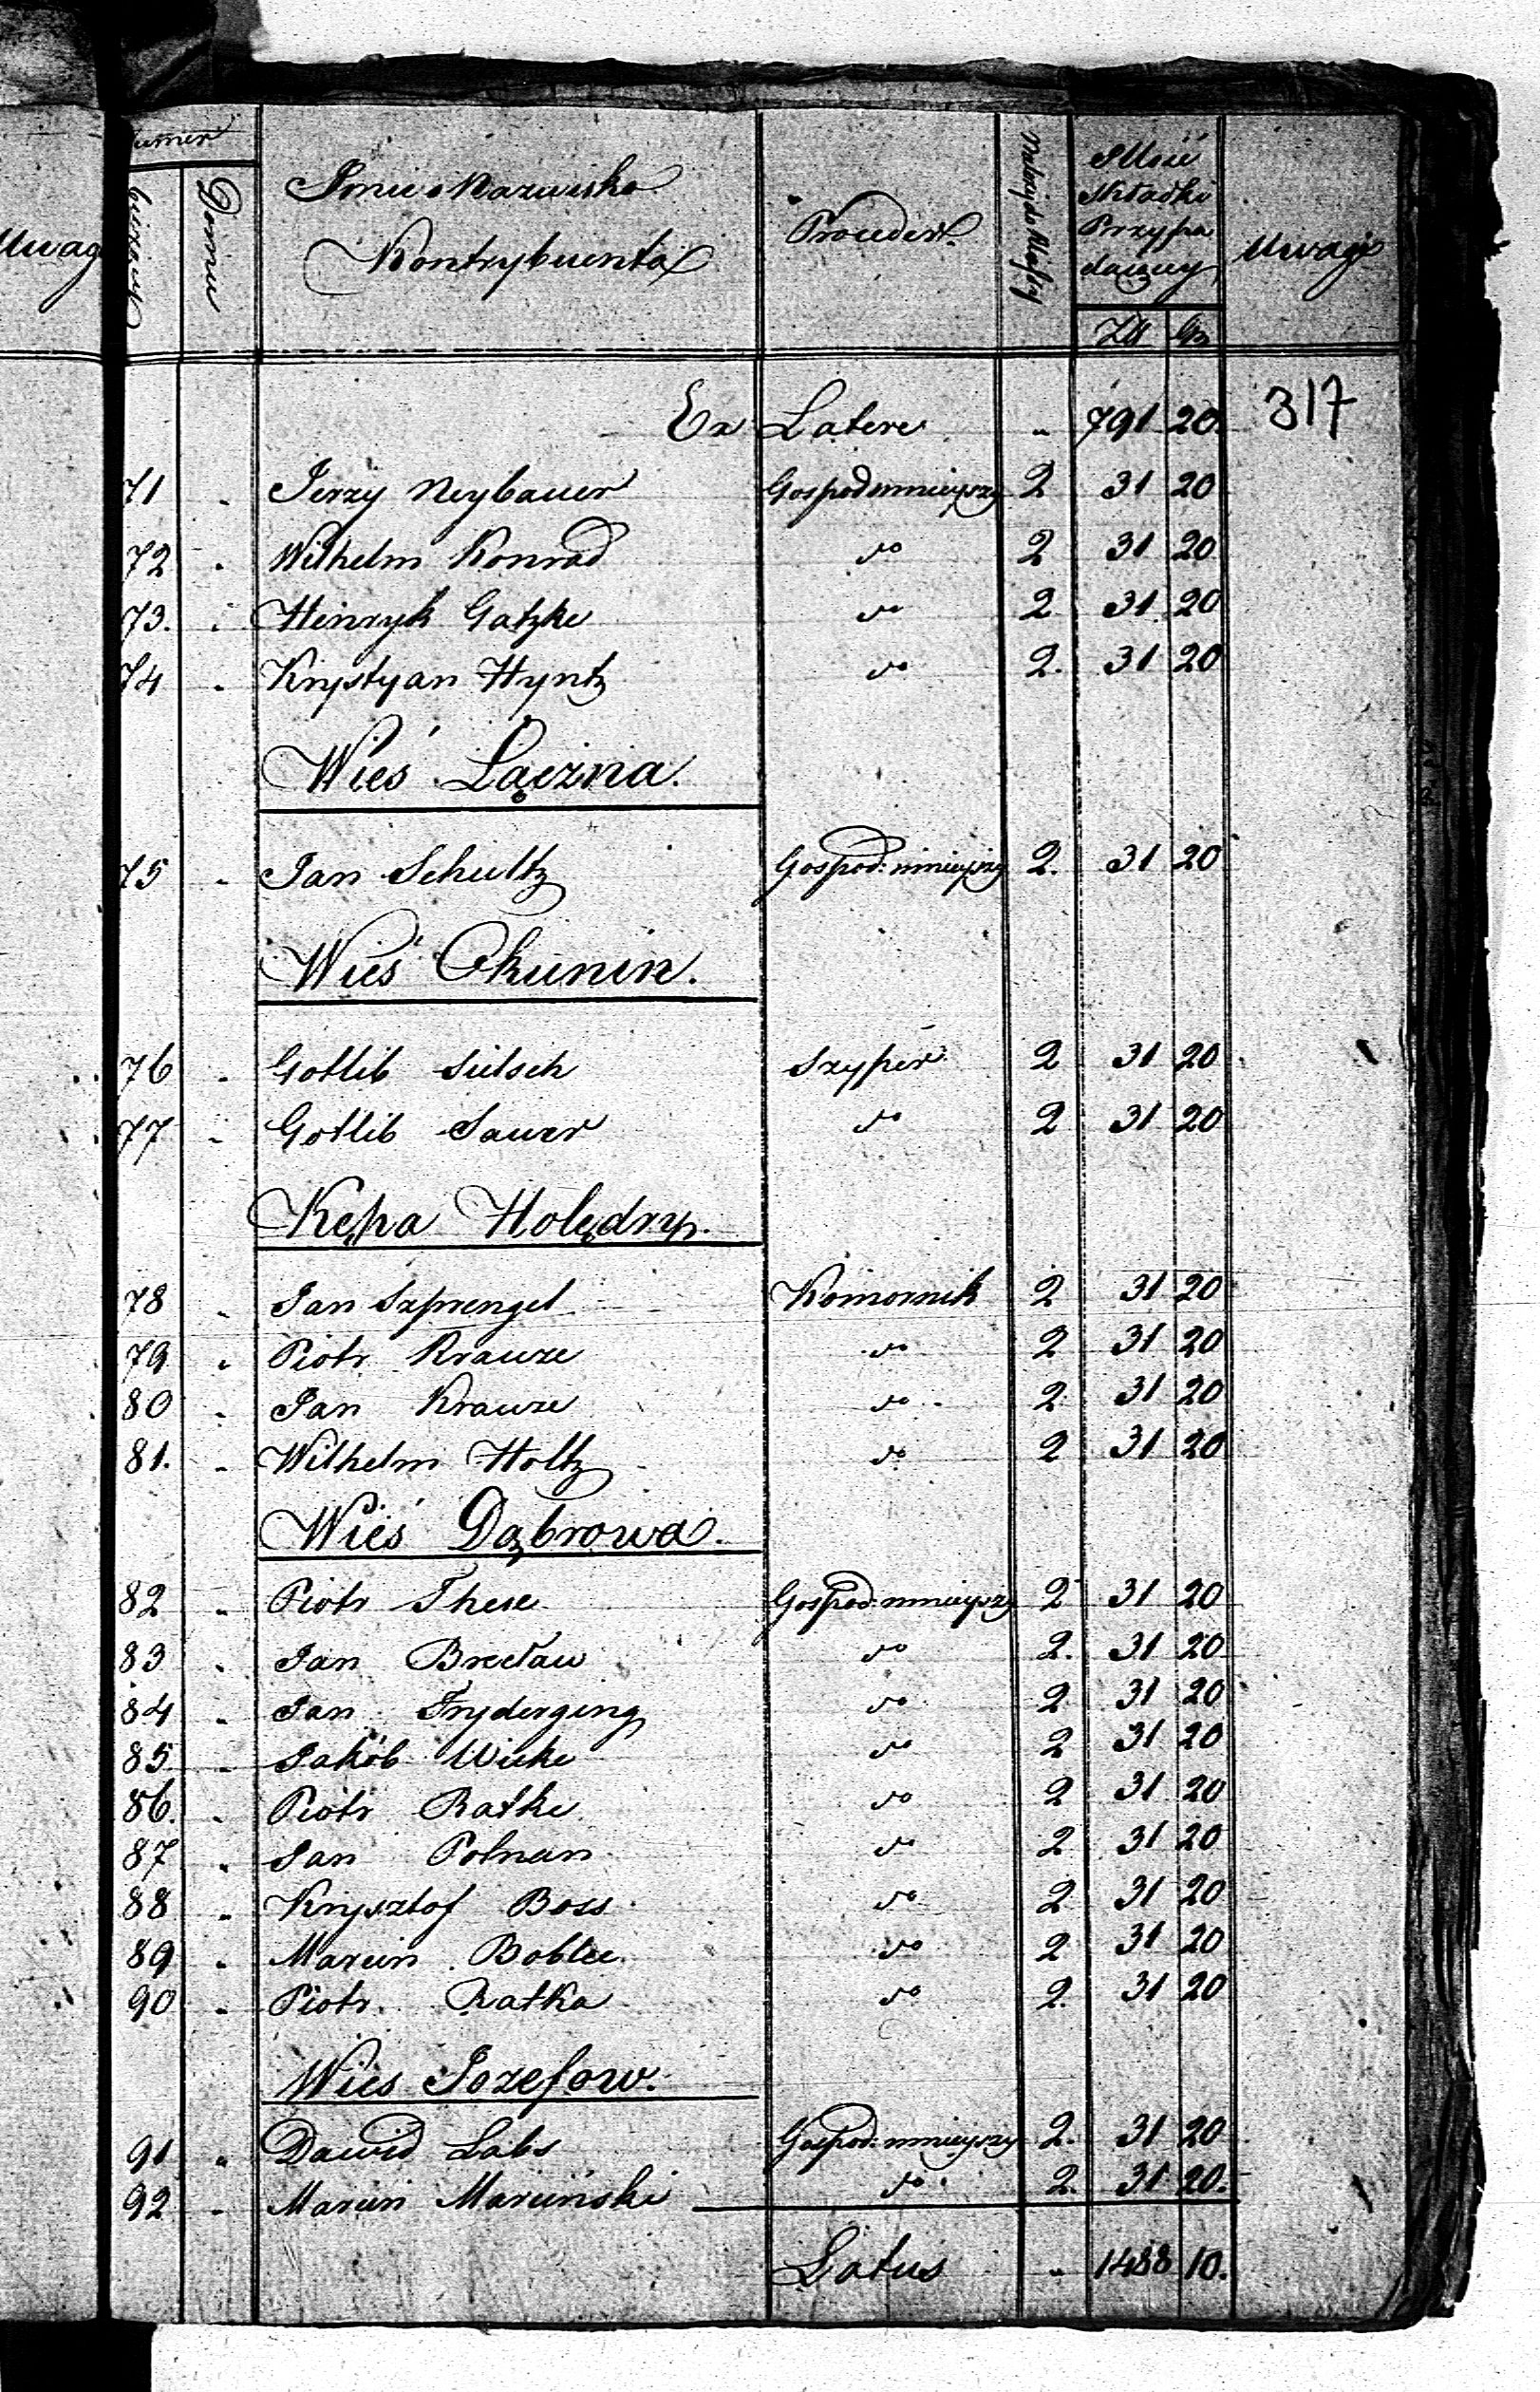 Uwag
Numer
bieżący
Domu
Imie i Nazwisko
Kontrybuenta
Proceder
Należy do Klassy
Ilość
Składki
Przypa
daiącey
Zł Gr
Uwagi
Ex Latere " 791 20. 317
71 " Jerzy Neybauer Gospod mnieyszy 2 31 20
72 " Wilhelm Konrad do 2 31 20
73. " Henryk Gatzke do 2 31 20
74 " Krystyan Hyntz do 2. 31 20
Wieś Łączna.
75 " Jan Schultz Gospod: mnieyszy 2. 31 20
Wieś Okunin.
76 " Gotlib Szyper 2 31 20
77 " Gotlib Sauer do 2 31 20
Kępa Holędry.
78 " Jan Szprengel Komornik 2 31 20
79 " Piotr Krauze do 2 31 20
80 " Jan Krauze do 2 31 20
81. " Wilhelm Holtz do 2 31 20
Wieś Dąbrowa.
82 " Piotr These Gospod: mnieyszy 2 31 20
83 " Jan do 2. 31 20
84 " Jan Fryderging do 2 31 20
85 " Jakób do 2 31 20
86. " Piotr Ratke do 2 31 20
87 " Jan Polnau do 2 31 20
88 " Krysztof Boss do 2 31 20
89 " Marcin do 2 31 20
90 " Piotr Ratka do 2. 31 20
Wies Jozefow.
91 " Dawid Labs Gospod: mnieyszy 2. 31 20
92 " Marcin Marciński do 2. 31 20.
Latus " 1488 10.